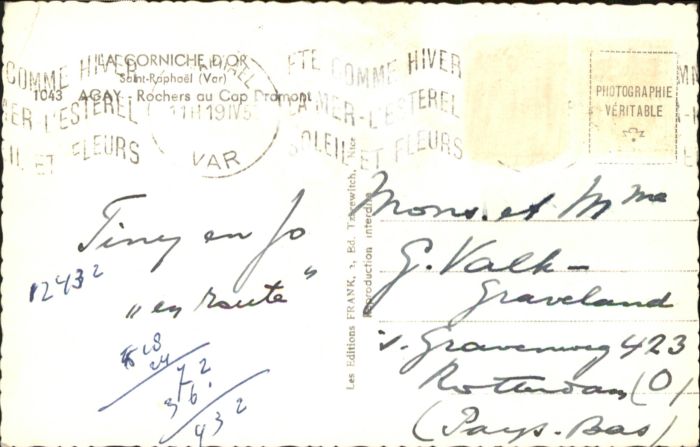 LA CORNICHE D'OR
Saint-Raphaël (Var)
1043 AGAY - Rochers au Cap Dramont
COMME HIVER
L'ESTEREL
ET FLEURS
11H 19 IV 5
VAR
COMME HIVER
LA MER - L'ESTEREL
SOLEIL ET FLEURS
PHOTOGRAPHIE
VÉRITABLE
Les Editions FRANK, 2, Ed. Tzarewitch, Nice
Reproduction interdite
Tiny en Jo
„en route”
12432
18
24
72
36.
432
Mons. et Mme
G. Valk-
Graveland
's-Gravenweg 423
Rotterdam (O)
(Pays-Bas)